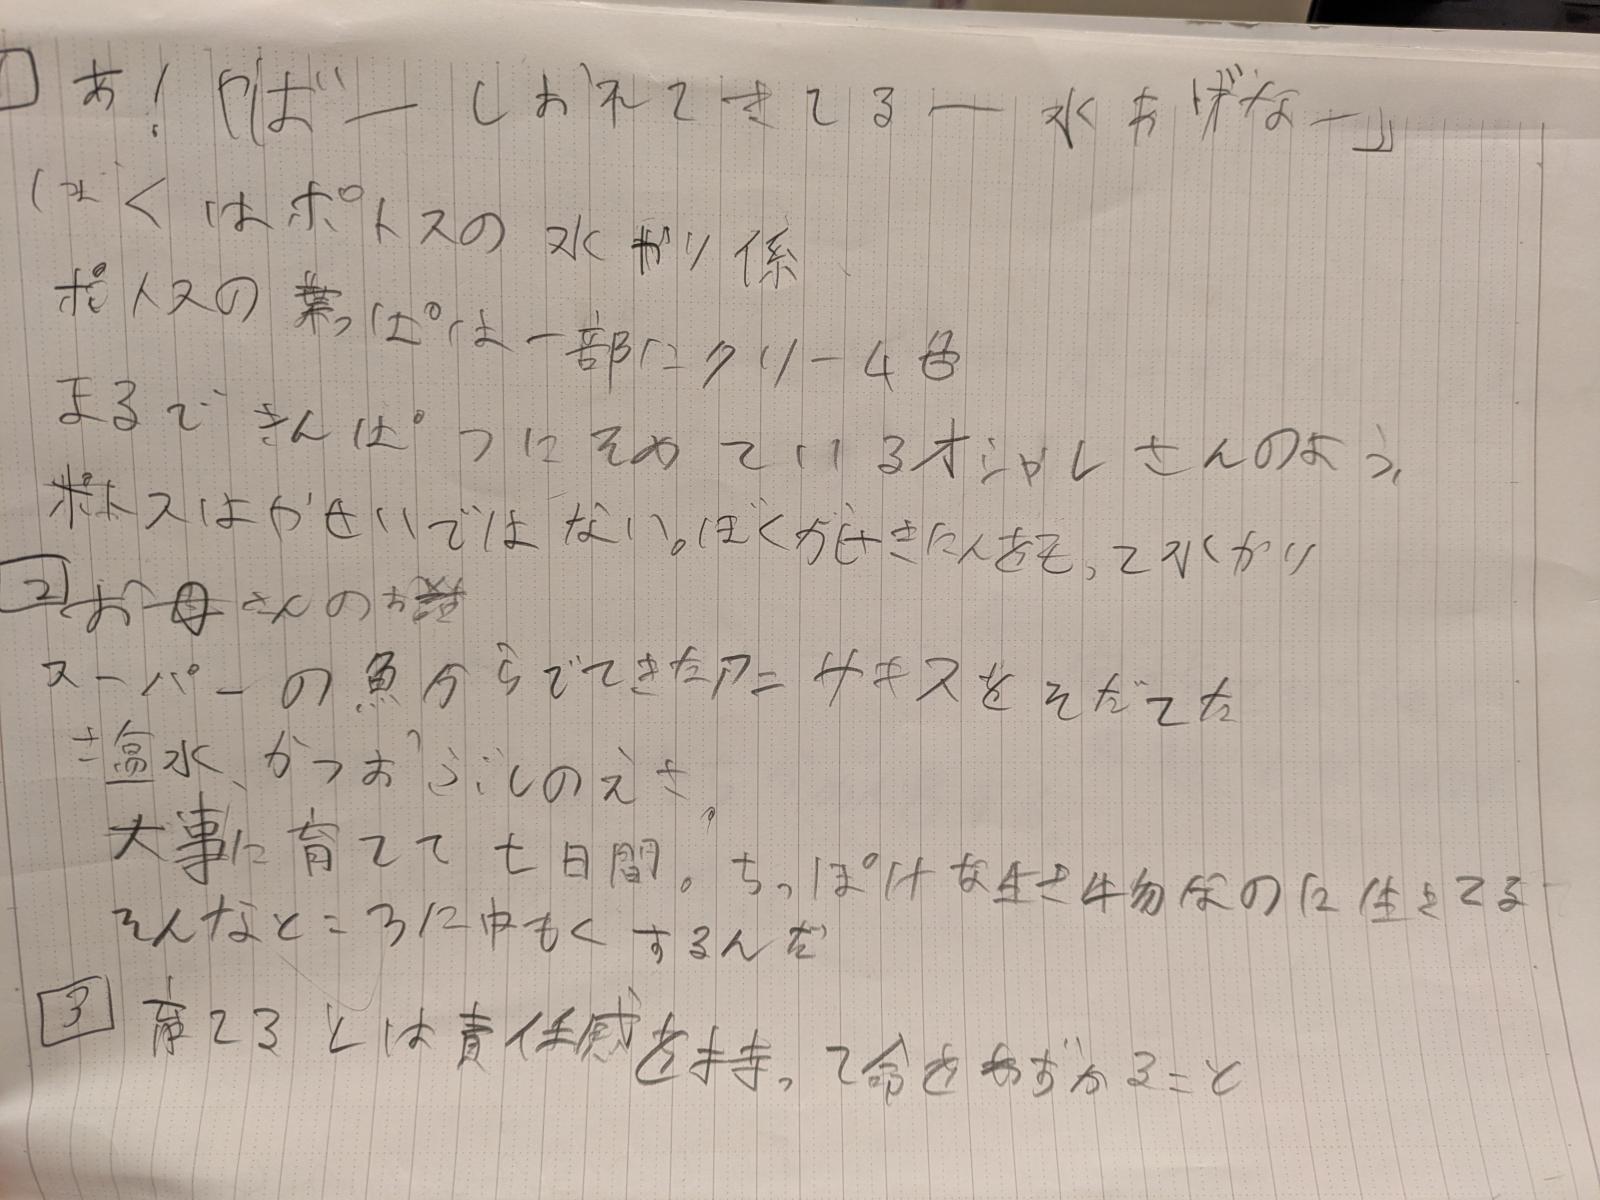 1 あ!やばーしおれてきてるー水あげなー」
ぼくはポトスの水やり係
ポトスの葉っぱは一部にクリーム色
まるできんぱつにそめているオシャレさんのよう、
ポトスはかせいではない。ぼくがせきにんをもって水やり
2 お母さんのお話
スーパーの魚からでてきたアニサキスをそだてた
塩水、かつおぶしのえさ。
大事に育てて七日間。ちっぽけな生き物なのに生きてる
そんなところに中もくするんだ
3 育てるとは責任感を持って命をあずかること